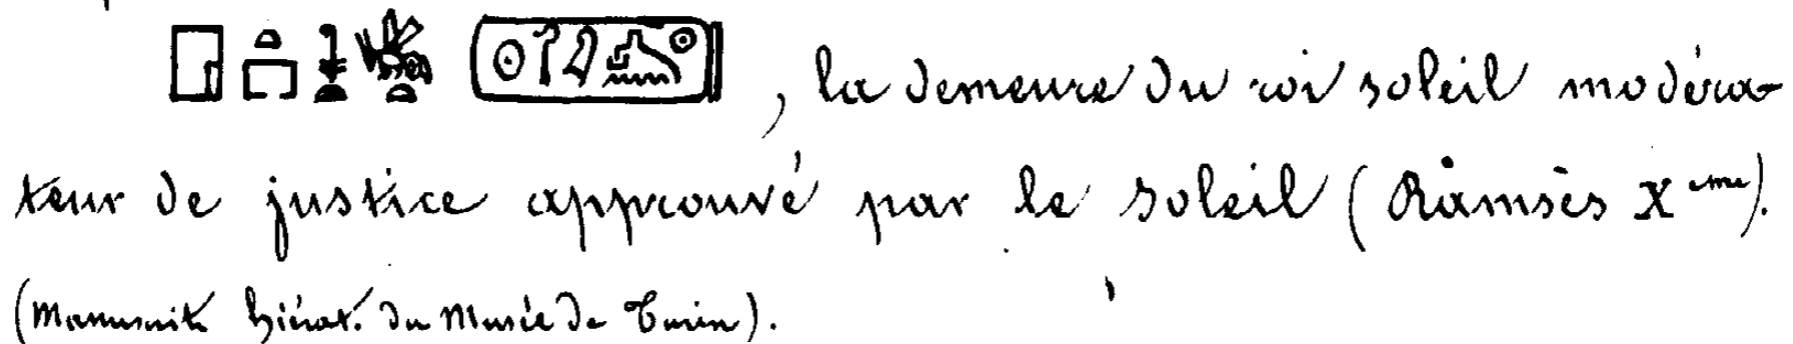 𓉗𓏏𓉐𓇓𓏏𓆤𓏏 𓍹𓇳𓋾𓆄𓍉𓈖𓇳𓍺, la demeure du roi soleil modéra-
teur de justice approuvé par le soleil (Ramsès X ème).
(Manuscrit hiérat. du Musée de Turin).